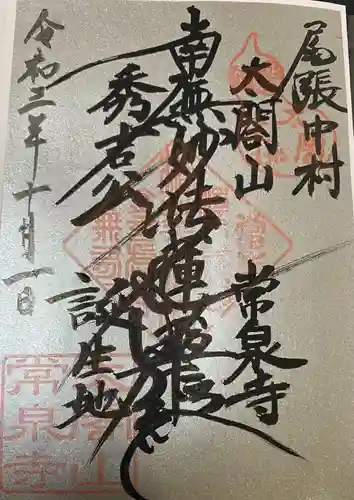 尾張中村
太閤山 常泉寺
南無妙法蓮華経
秀吉公 誕生地
令和三年十月一日
太閤山
常泉寺